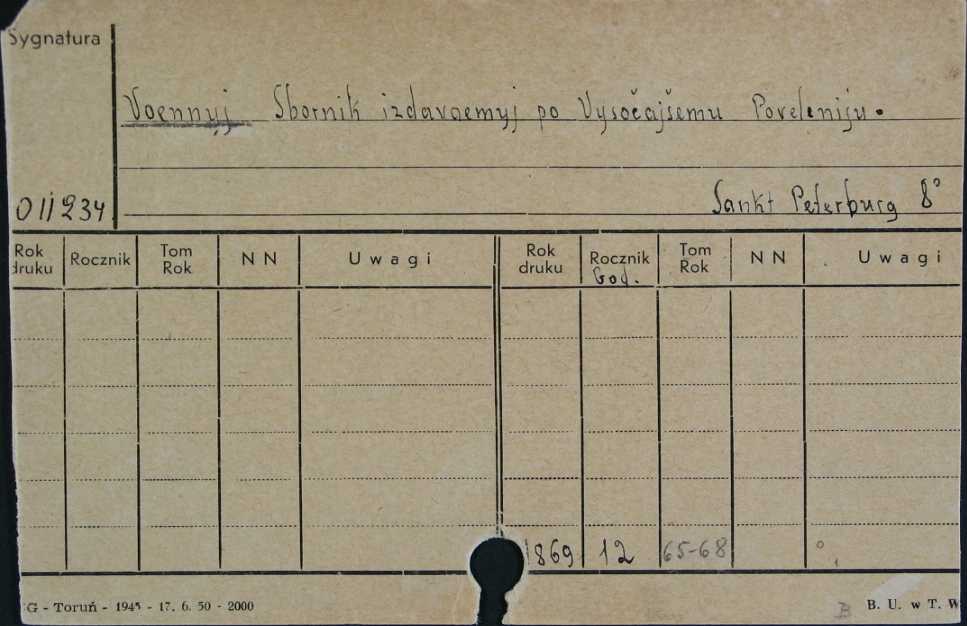 Sygnatura
Voennyj Sbornik izdavaemyj po Vysočajšemu Poveleniju.
011234
Sankt Peterburg 8°
Rok druku Rocznik Tom Rok NN Uwagi Rok druku Rocznik God. Tom Rok NN Uwagi
1869 12 65-68
G - Toruń - 1945 - 17. 6. 50 - 2000
B B. U. w T. W